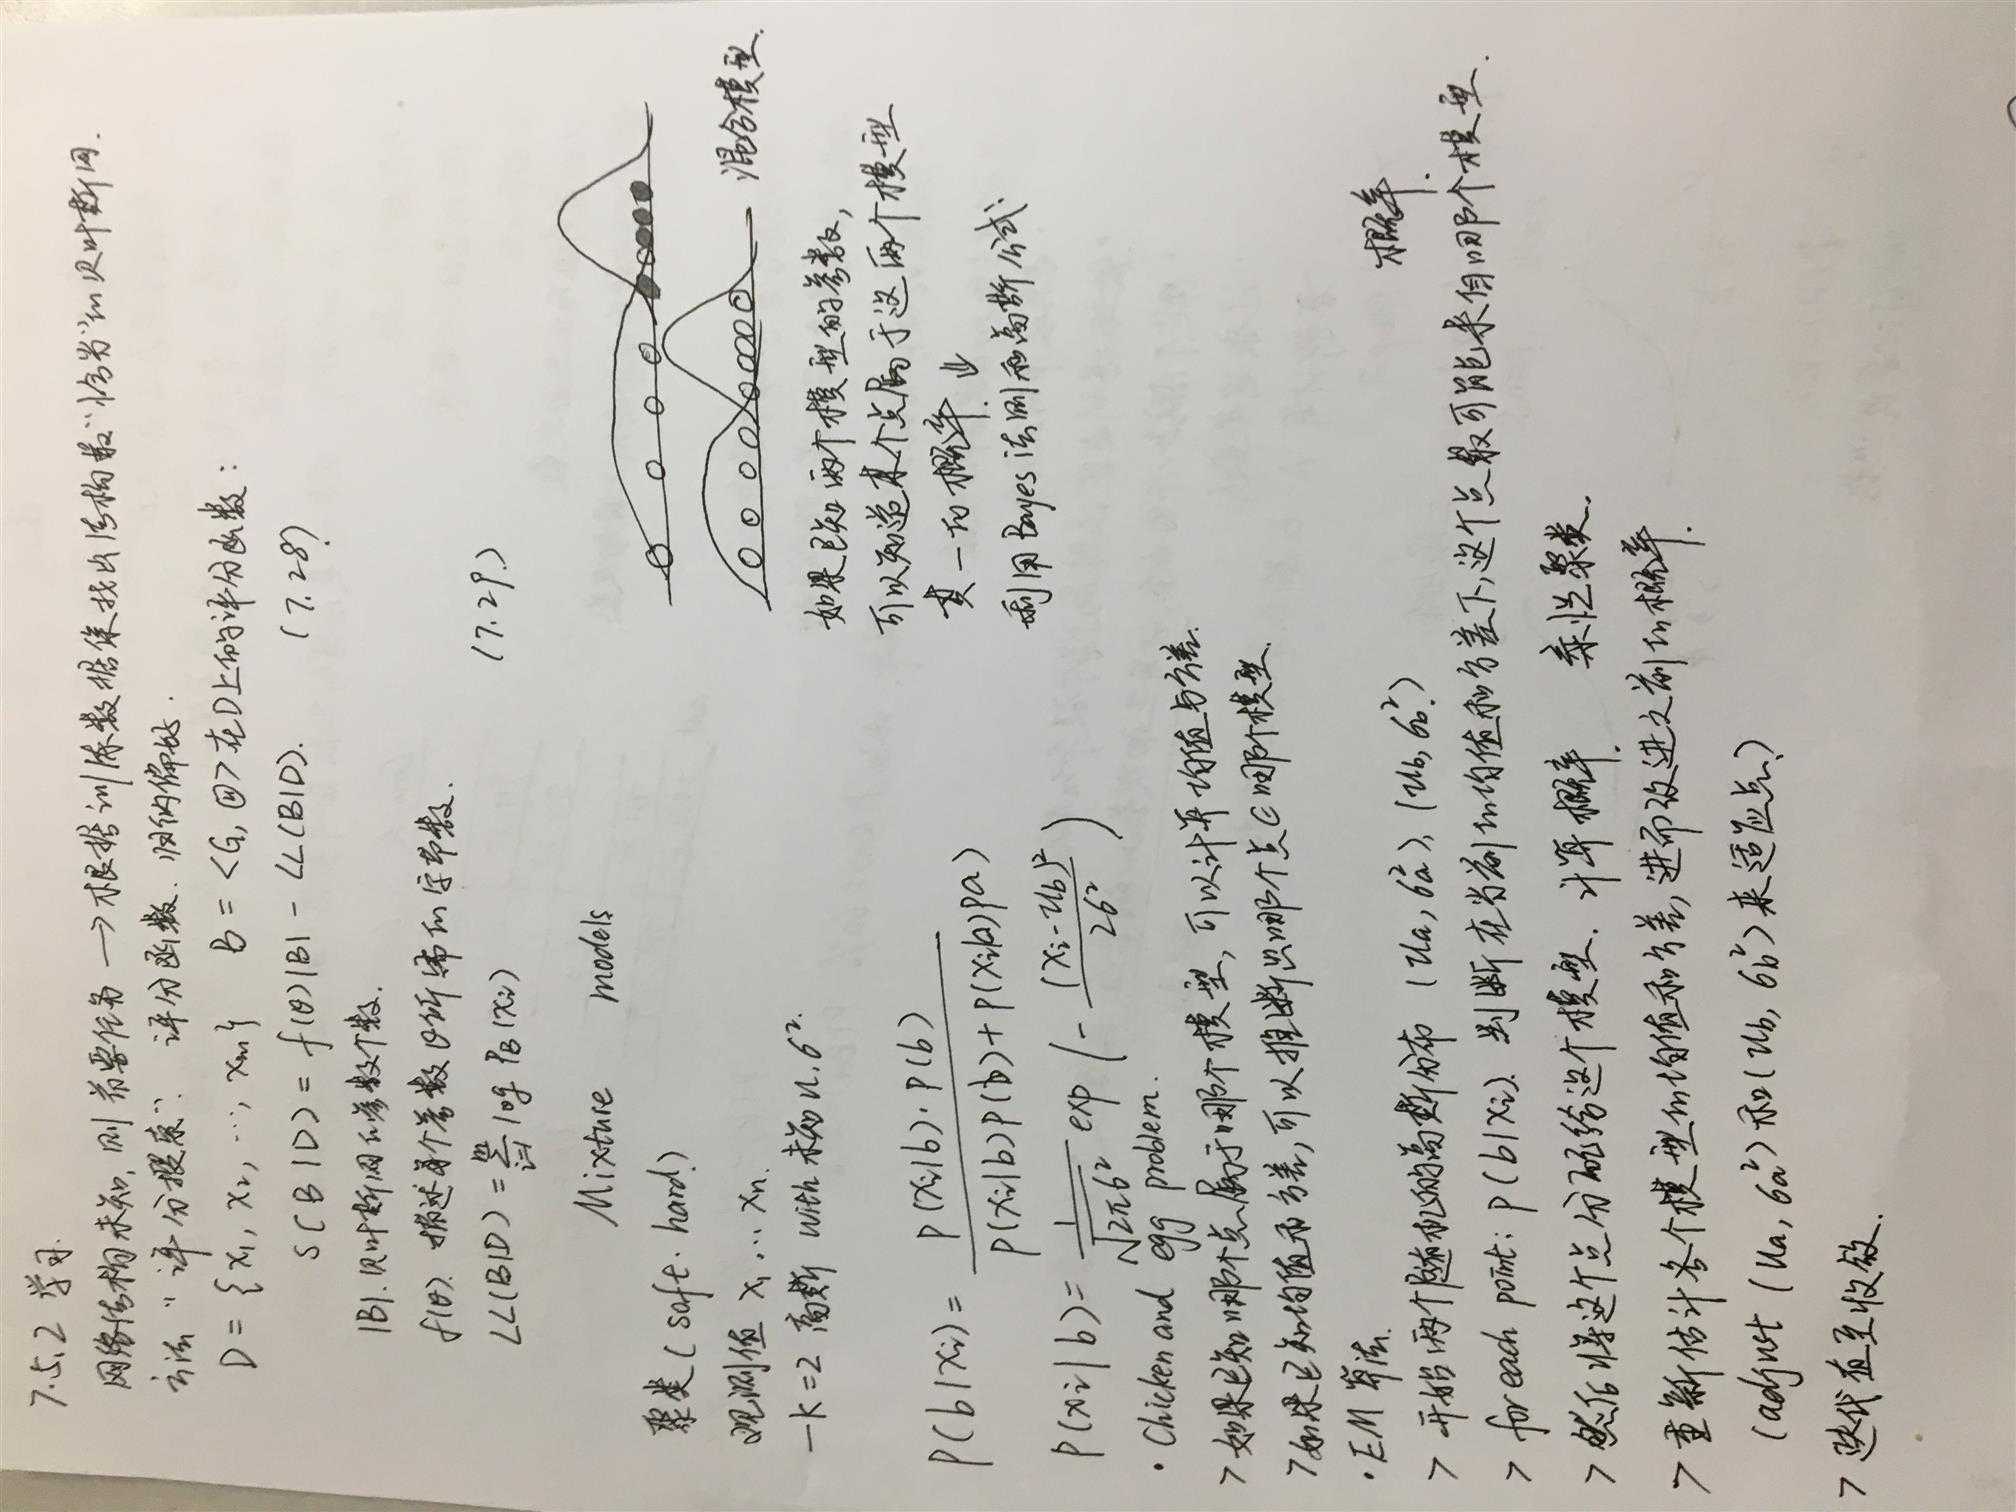 7.5.2 学习.
网络结构未知, 则首要任务 → 根据训练数据集找出结构最“恰当”的贝叶斯网.
方法 “评分搜索”: 评分函数. 归纳偏好.
D = { x1, x2, ..., xm } B = <G, Θ> 在D上的评分函数:
S(B|D) = f(θ)|B| - LL(B|D). (7.28)
|B|. 贝叶斯网的参数个数.
f(θ). 描述每个参数θ所需的字节数.
LL(B|D) = Σ_{i=1}^{m} log P_B(xi) (7.29.)
Mixture models
聚类 ( soft. hard.)
观测值 x1 ... xn.
- k=2 高斯 with 未知 u, σ².
混合模型.
如果已知两个模型的参数,
可以知道某个点属于这两个模型
某一的概率. ⇓
利用Bayes法则和高斯公式.
P(b|xi) = P(xi|b)·P(b) / P(xi|b)P(b) + P(xi|a)P(a)
P(xi|b) = 1/√2πσ² exp ( - (xi - ub)²/2σ² )
· Chicken and egg problem.
> 如果已知哪个点属于哪个模型, 可以计算均值与方差.
> 如果已知均值和方差, 可以推断出哪个点∈哪个模型.
· EM 算法.
> 开始两个随机的高斯分布 (ua, σa²), (ub, σb²)
> for each point: P(b|xi). 判断在当前的均值和方差下, 这个点最可能来自哪个模型 概率.
> 然后将这个点分配给这个模型. 计算概率. 柔性聚类.
> 重新估计各个模型的均值和方差, 进而改进之前的概率.
(adjust (ua, σa²) 和 (ub, σb²) 来适应点.)
> 迭代直至收敛.